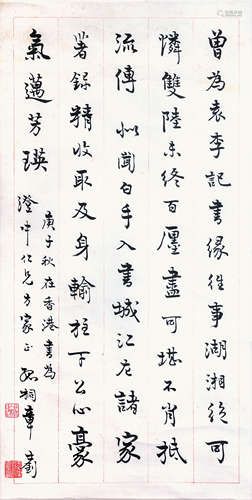 曾為袁李記書緣往事湖湘絕可
憐雙陸未終百厘盡可堪不肖抵
流傳 似聞白手入書城江左諸家
署錄精收取及身輸柱下公心豪
氣邁芳瑛
庚子秋在香港書為
澄中仁兄方家正 孤桐章士釗